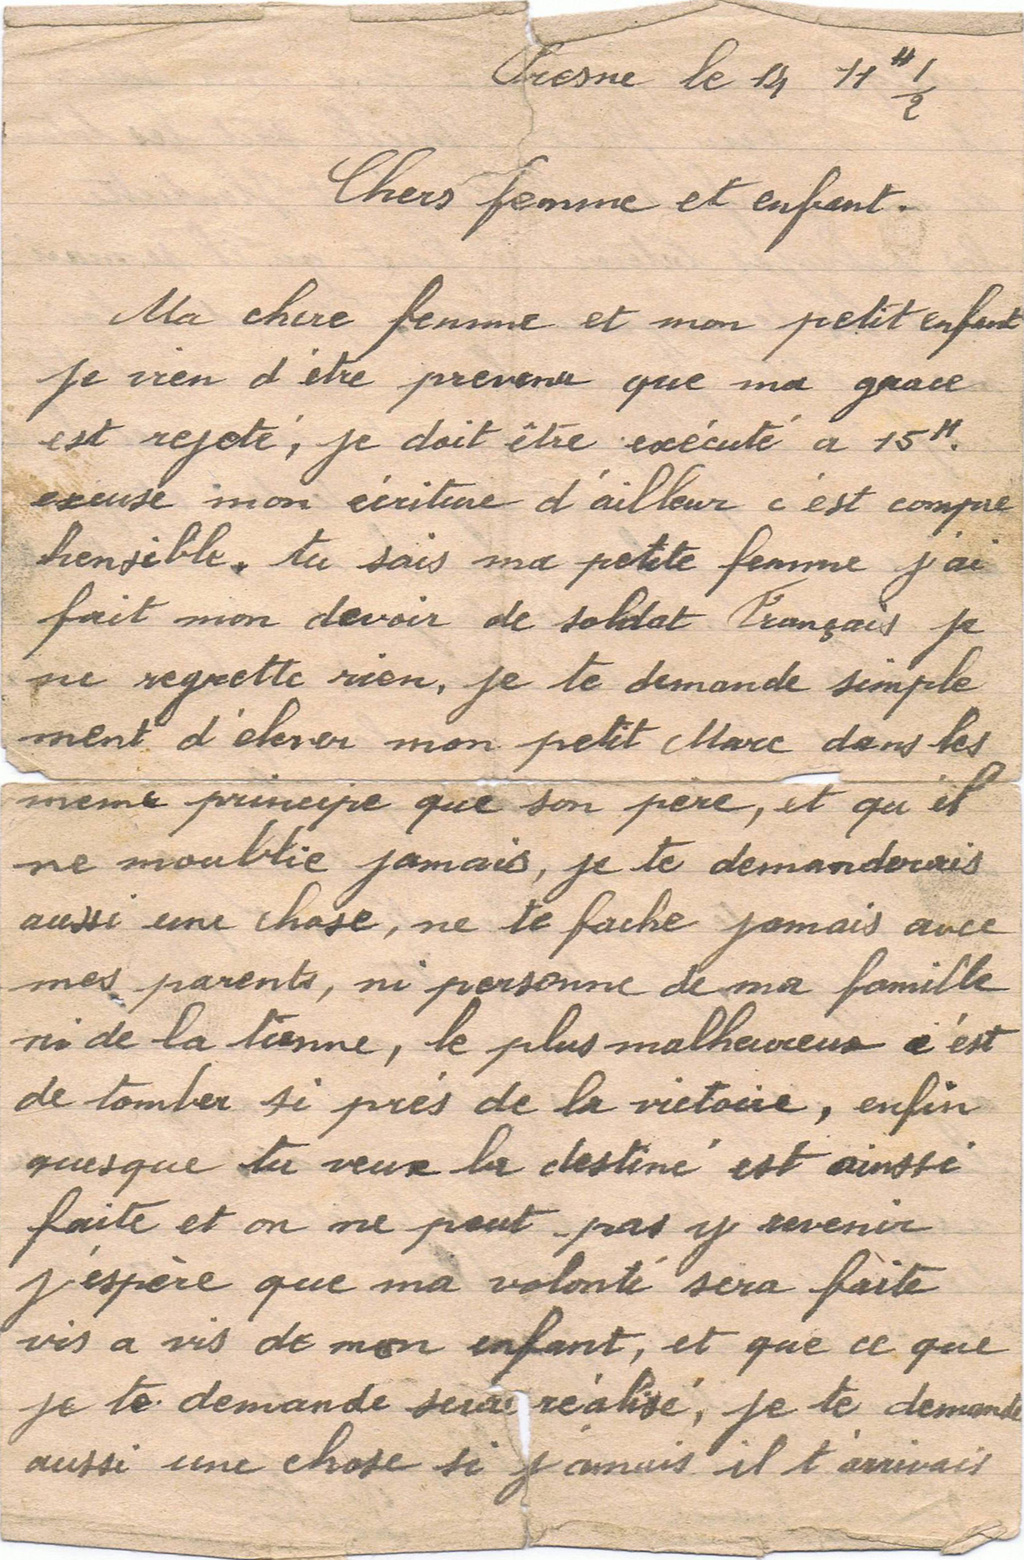 Fresne le 14 11 H 1/2
Chers femme et enfant.
Ma chere femme et mon petit enfant
je vien d'être prevenu que ma grace
est rejeté, je doit être exécuté a 15H.
excuse mon écriture d'ailleur c'est compre
hensible. tu sais ma petite femme j'ai
fait mon devoir de soldat Français je
ne regrette rien, je te demande simple
ment d'élever mon petit Marc dans les
meme principe que son père, et qu'il
ne moublie jamais, je te demanderais
aussi une chose, ne te fache jamais avec
mes parents, ni personne de ma famille
ni de la tienne, le plus malheureux c'est
de tomber si prés de la victoire, enfin
quesque tu veux la destiné est ainssi
faite et on ne peut pas y revenir
j'éspère que ma volonté sera faite
vis a vis de mon enfant, et que ce que
je te demande sera réalisé, je te demande
aussi une chose si j'amais il t'arrivais